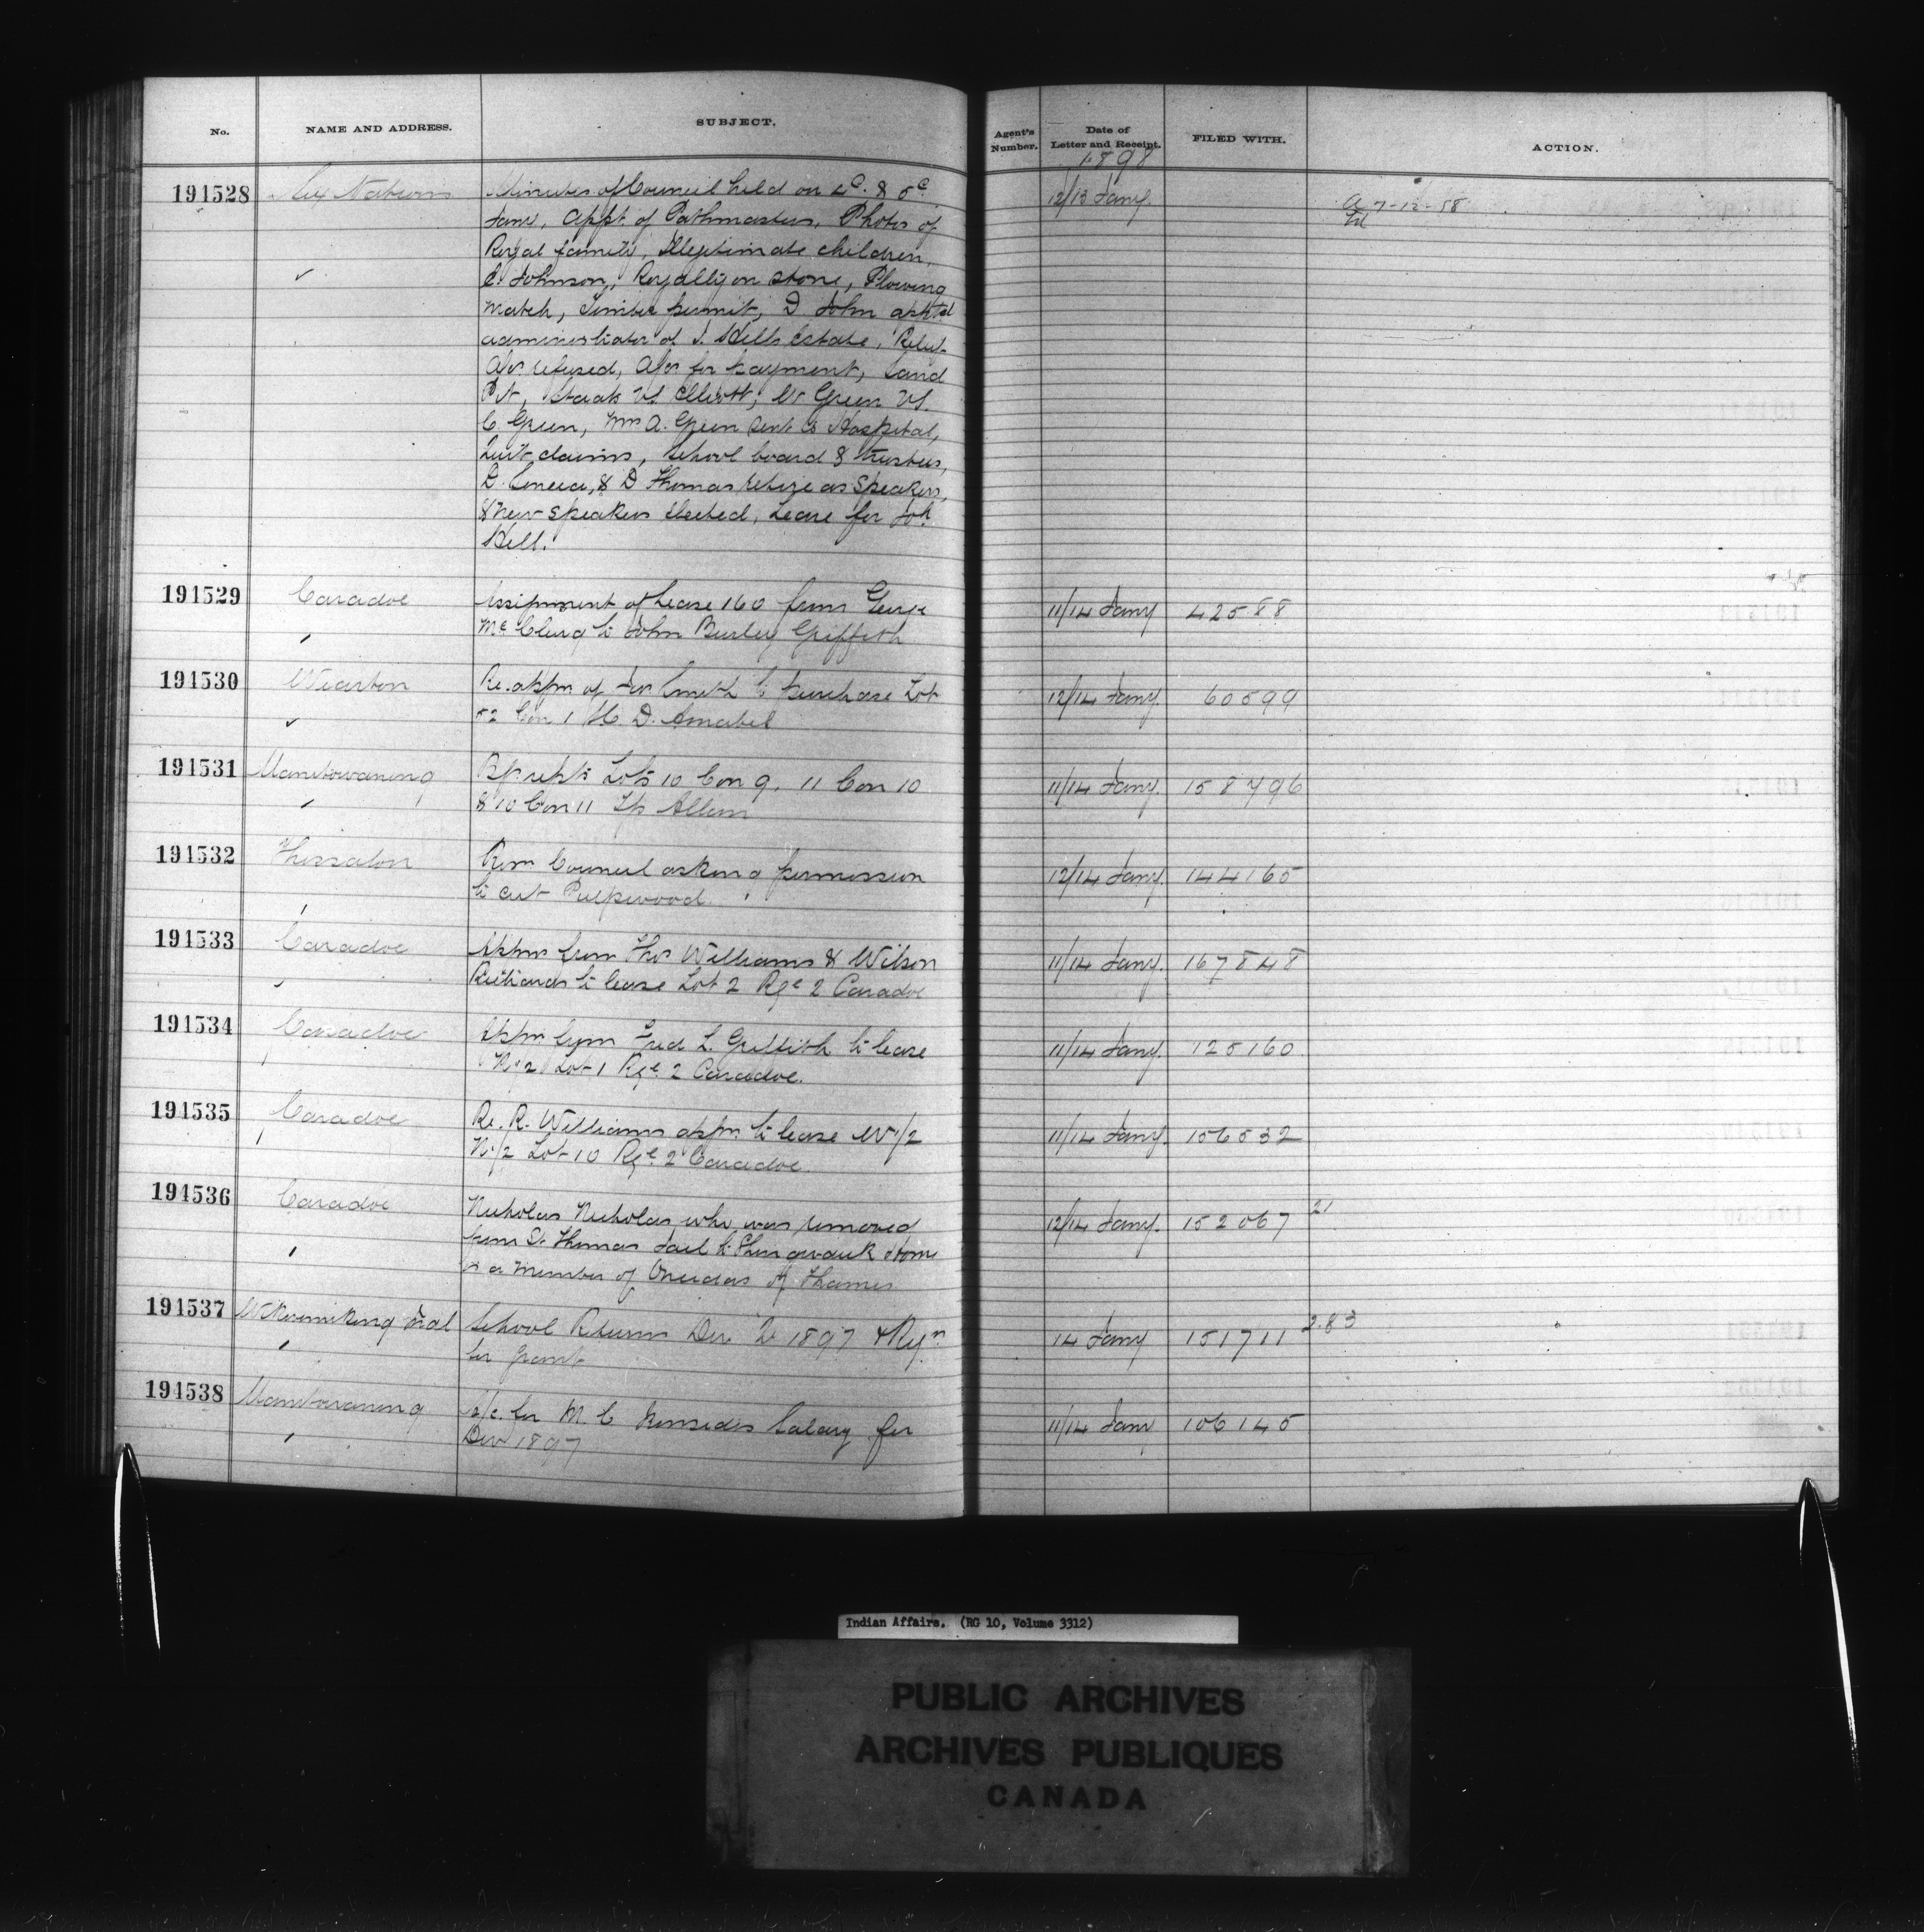 No. NAME AND ADDRESS. SUBJECT. Agent's Number. Date of Letter and Receipt. FILED WITH. ACTION.
1898
191528 Six Nations Minutes of Council held on 4th & 5th 12/13 Jany. 7-12-58
Jany, Appt. of Pathmasters, Photos of
Royal family, Illegitimate children,
Johnson, Royalty on stone, Plowing
match, Timber permit, D. John apptd
administrator of J. Hill's Estate, Relief
refused, for payment, Sand
Pit, Staats vs. Elliott, W Green vs.
C. Green, Mrs A. Green sent to Hospital,
Quit claims, School board & trustees,
& D Thomas retire as Speakers,
& new speakers elected, Lease for
Hill.
191529 Caradoc Assignment of Lease 160 from George 11/14 Jany 42588
McClurg to John Burley Griffith
191530 Wiarton Re. appn of Smith to purchase Lot 12/14 Jany. 60599
52 Con 1 H. D. Amabel
191531 Manitowaning Lots 10 Con 9. 11 Con 10 11/14 Jany. 158796
& 10 Con 11 Tp Allan
191532 Thessalon Council asking permission 12/14 Jany. 144165
to cut Pulpwood.
191533 Caradoc Appn from Thos Williams & Wilson 11/14 Jany. 167848
to lease Lot 2 Rge 2 Caradoc
191534 Caradoc Appn from Fred L. Griffith to lease 11/14 Jany. 125160
Lot 1 Rge. 2 Caradoc.
191535 Caradoc Re. R. Williams appn. to lease W 1/2 11/14 Jany. 156532
N 1/2 Lot 10 Rge. 2 Caradoc.
191536 Caradoc Nicholas Nicholas, who was removed 12/14 Jany. 152067 21
from St. Thomas Jail to Shingwauk Home
is a member of Oneidas of Thames
191537 School Return Dec 1897 & 14 Jany 151711 2.83
for grant
191538 Manitowaning a/c. for M. C Salary for 11/14 Jany 106145
Dec 1897
Indian Affairs. (RG 10, Volume 3312)
PUBLIC ARCHIVES
ARCHIVES PUBLIQUES
CANADA